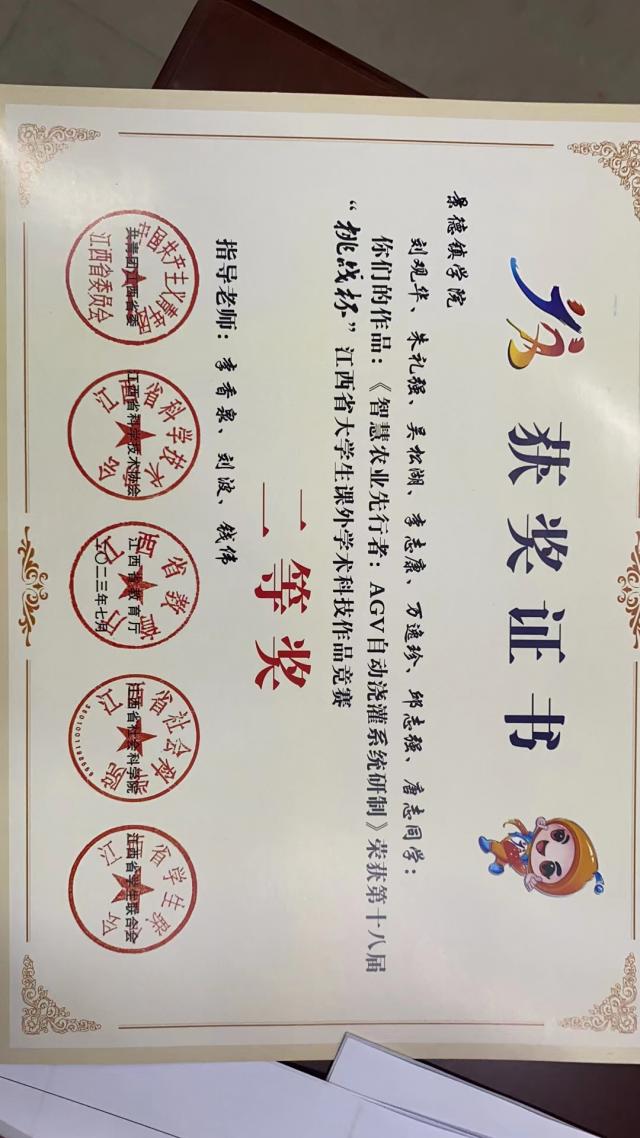 获奖证书
景德镇学院
刘观华、朱礼强、吴松湖、李志康、万逸珍、邱志强、唐志同学：
你们的作品：《智慧农业先行者：AGV自动浇灌系统研制》荣获第十八届
“挑战杯”江西省大学生课外学术科技作品竞赛
二等奖
指导老师：李香泉、刘波、钱伟
共青团江西省委
江西省科学技术协会
江西省教育厅
江西省社会科学院
江西省学生联合会
二〇二三年七月
江西省委员会